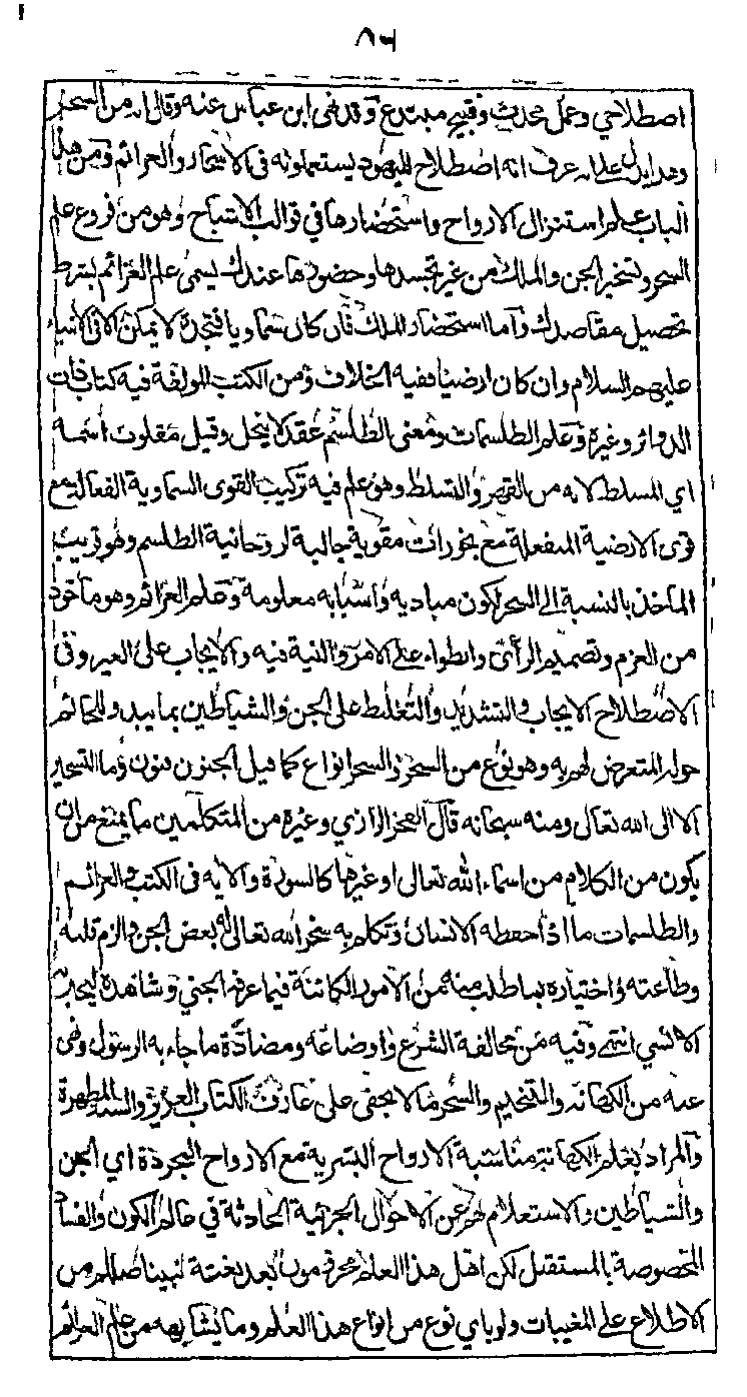 ٨٦
اصطلاحي وعمل محدث وقبيح مبتدع وقد نهى ابن عباس عنه وقال انه من السحر
وهذا يدل على انه عرف انه اصطلاح لليهود يستعملونه في الاسحار والعزائم ومن هذا
الباب علم استنزال الارواح واستحضارها في قوالب الاشباح وهو من فروع علم
السحر وتسخير الجن والملك من غير تجسدها وحضورها عندك يسمى علم العزائم بشرط
تحصيل مقاصدك واما استحضار الملك فان كان سماويا فتجسده لا يمكن الا في الانبياء
عليهم السلام وان كان ارضيا ففيه الخلاف ومن الكتب المولفة فيه كتاب ذات
الدوائر وغيره وعلم الطلسمات ومعنى الطلسم عقد لا ينحل وقيل مقلوب اسمه
اي المسلط لانه من القهر والتسلط وهو علم فيه تركيب القوى السماوية الفعالة مع
قوى الارضية المنفعلة مع بخورات مقوية جالبة لروحانية الطلسم وهو قريب
الماخذ بالنسبة الى السحر لكون مباديه واسبابه معلومة وعلم العزائم وهو ماخوذ
من العزم وتصميم الرأي وانطواء على الامر والنية فيه والايجاب على الغير وفي
الاصطلاح الايجاب والتشديد والتغليظ على الجن والشياطين بما يبدو للحائم
حوله المتعرض لهم به وهو نوع من السحر والسحر انواع كما قيل الجنون فنون وما التسخير
الا الى الله تعالى ومنه سبحانه قال الفخر الرازي وغيره من المتكلمين ما يمنع من ان
يكون من الكلام من اسماء الله تعالى او غيرها كالسورة والايه في الكتب والعزائم
والطلسمات ما اذا حفظه الانسان وتكلم به سخر الله تعالى له بعض الجن والزم قلبه
وطاعته واختياره بما طلب منه من الامور الكائنة فيما عرفه الجني وشاهده ليخبر به
الانسي انتهى وفيه من مخالفة الشرع واوضاعه ومضادة ما جاء به الرسول ونهى
عنه من الكهانة والتنجيم والسحر ما لا يخفى على عارف الكتاب العزيز والسنة المطهرة
والمراد بعلم الكهانة مناسبة الارواح البشرية مع الارواح المجردة اي الجن
والشياطين والاستعلام لهم عن الاحوال الجزئية الحادثة في عالم الكون والفساد
المخصوصة بالمستقبل لكن اهل هذا العلم محرومون بعد بعثة نبينا صللم من
الاطلاع على المغيبات ولو باي نوع من انواع هذا العلم وما يشابهه من علم العزائم